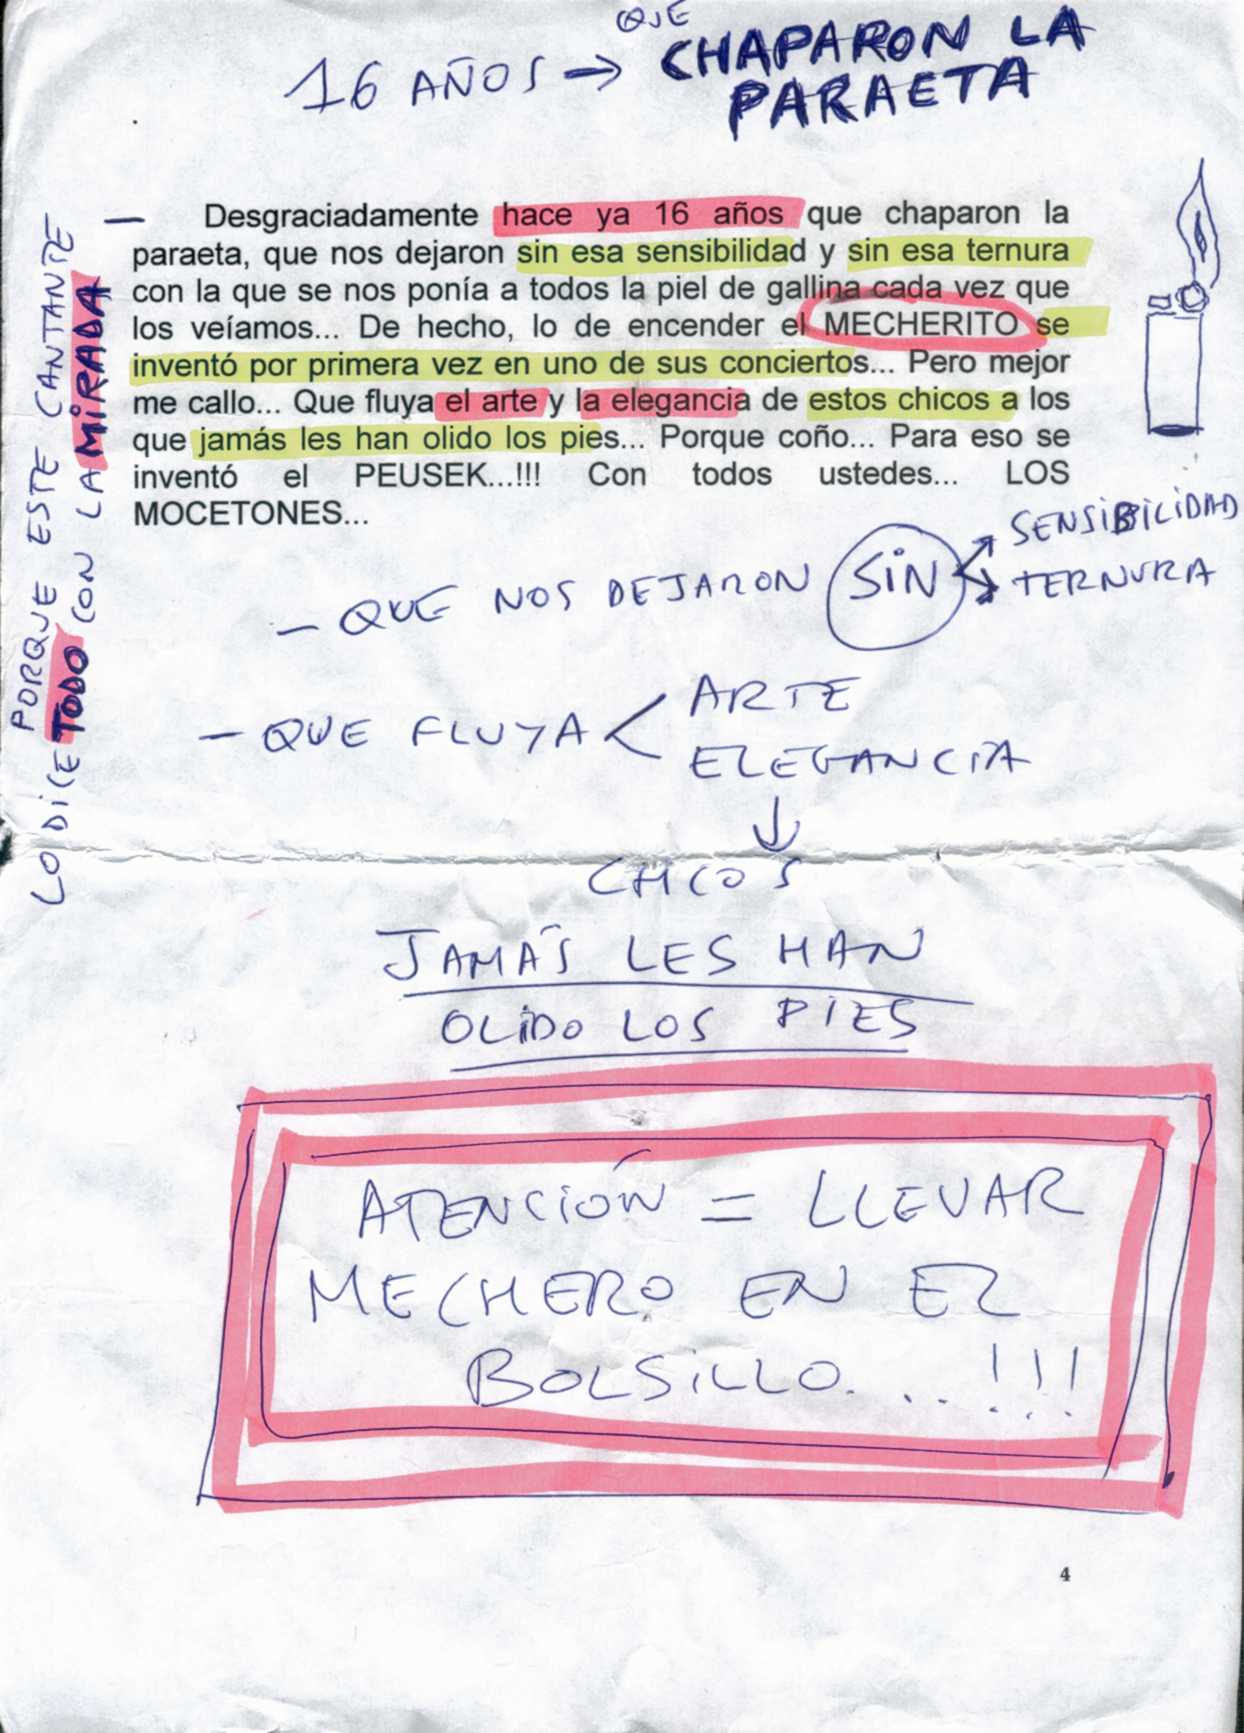 QUE
16 AÑOS → CHAPARON LA
PARAETA
— Desgraciadamente hace ya 16 años que chaparon la
paraeta, que nos dejaron sin esa sensibilidad y sin esa ternura
con la que se nos ponía a todos la piel de gallina cada vez que
los veíamos... De hecho, lo de encender el MECHERITO se
inventó por primera vez en uno de sus conciertos... Pero mejor
me callo... Que fluya el arte y la elegancia de estos chicos a los
que jamás les han olido los pies... Porque coño... Para eso se
inventó el PEUSEK...!!! Con todos ustedes... LOS
MOCETONES...
PORQUE ESTE CANTANTE
LO DICE TODO CON LA MIRADA
– QUE NOS DEJARON SIN
SENSIBILIDAD
TERNURA
– QUE FLUYA
ARTE
ELEGANCIA
↓
CHICOS
JAMÁS LES HAN
OLIDO LOS PIES
ATENCIÓN = LLEVAR
MECHERO EN EL
BOLSILLO...!!!
4